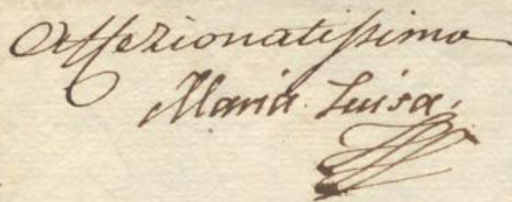 Affezionatissima
Maria Luisa.